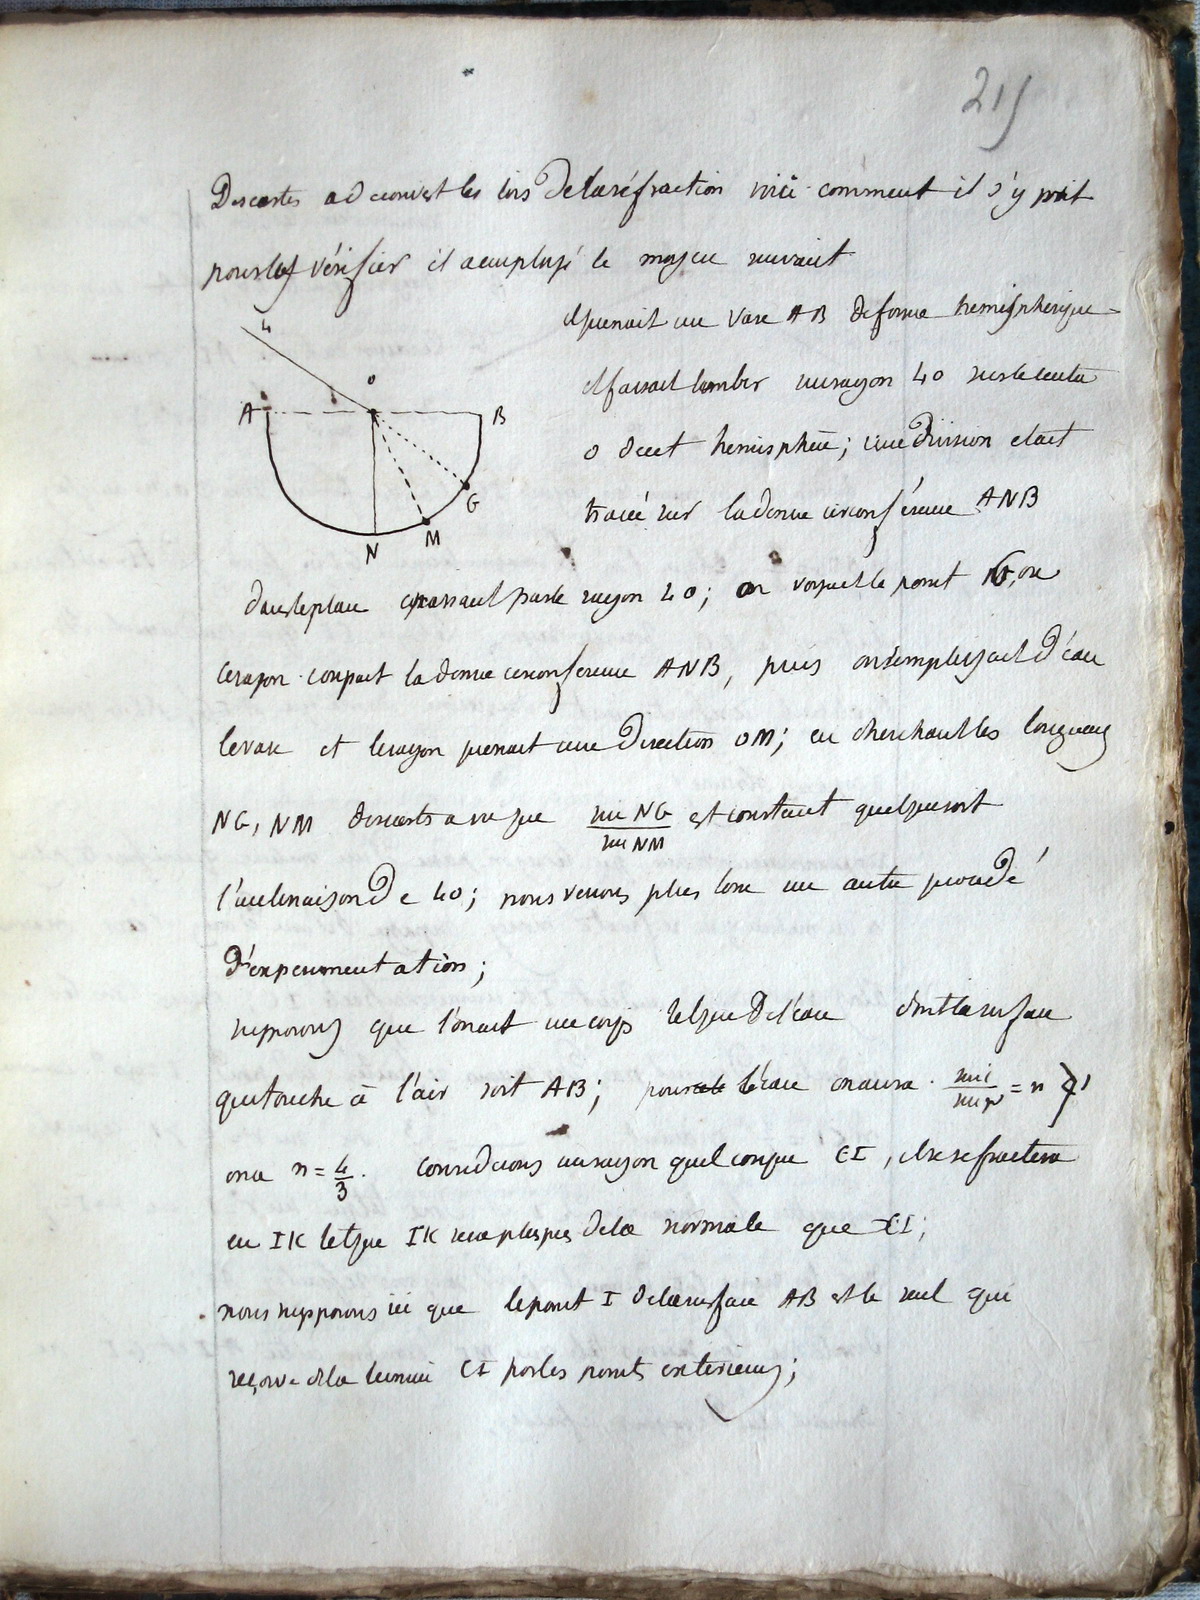 215
Descartes a découvert les lois de la réfraction voici comment il s'y prit
pour les vérifier il a employé le moyen suivant
L
O
A
B
G
M
N
il prenait un vase AB de forme hemispherique
il faisait tomber un rayon LO sur le centre
O de cet hemisphère; une division etait
tracée sur la demie circonférence ANB
dans le plan passant par le rayon LO; on voyait le point G, ou
ce rayon coupait la demie circonference ANB, puis on remplissait d'éau
le vase et le rayon prenait une direction OM; en cherchant les longueurs
NG, NM descartes a vu que sin NG / sin NM est constant quelque soit
l'inclinaison de LO; nous verrons plus loin un autre procédé
d'experimentation;
supposons que l'on ait un corps tel que de l'éau dont la surface
qui touche à l'air soit AB; pour l'éau on aura sin i / sin r = n
on a n = 4/3. Considerons un rayon quelconque CI, il se refractera
en IK tel que IK sera plus près de la normale que CI;
nous supposons ici que le point I de la surface AB est le seul qui
reçoive de la lumière CI par les points exterieurs;